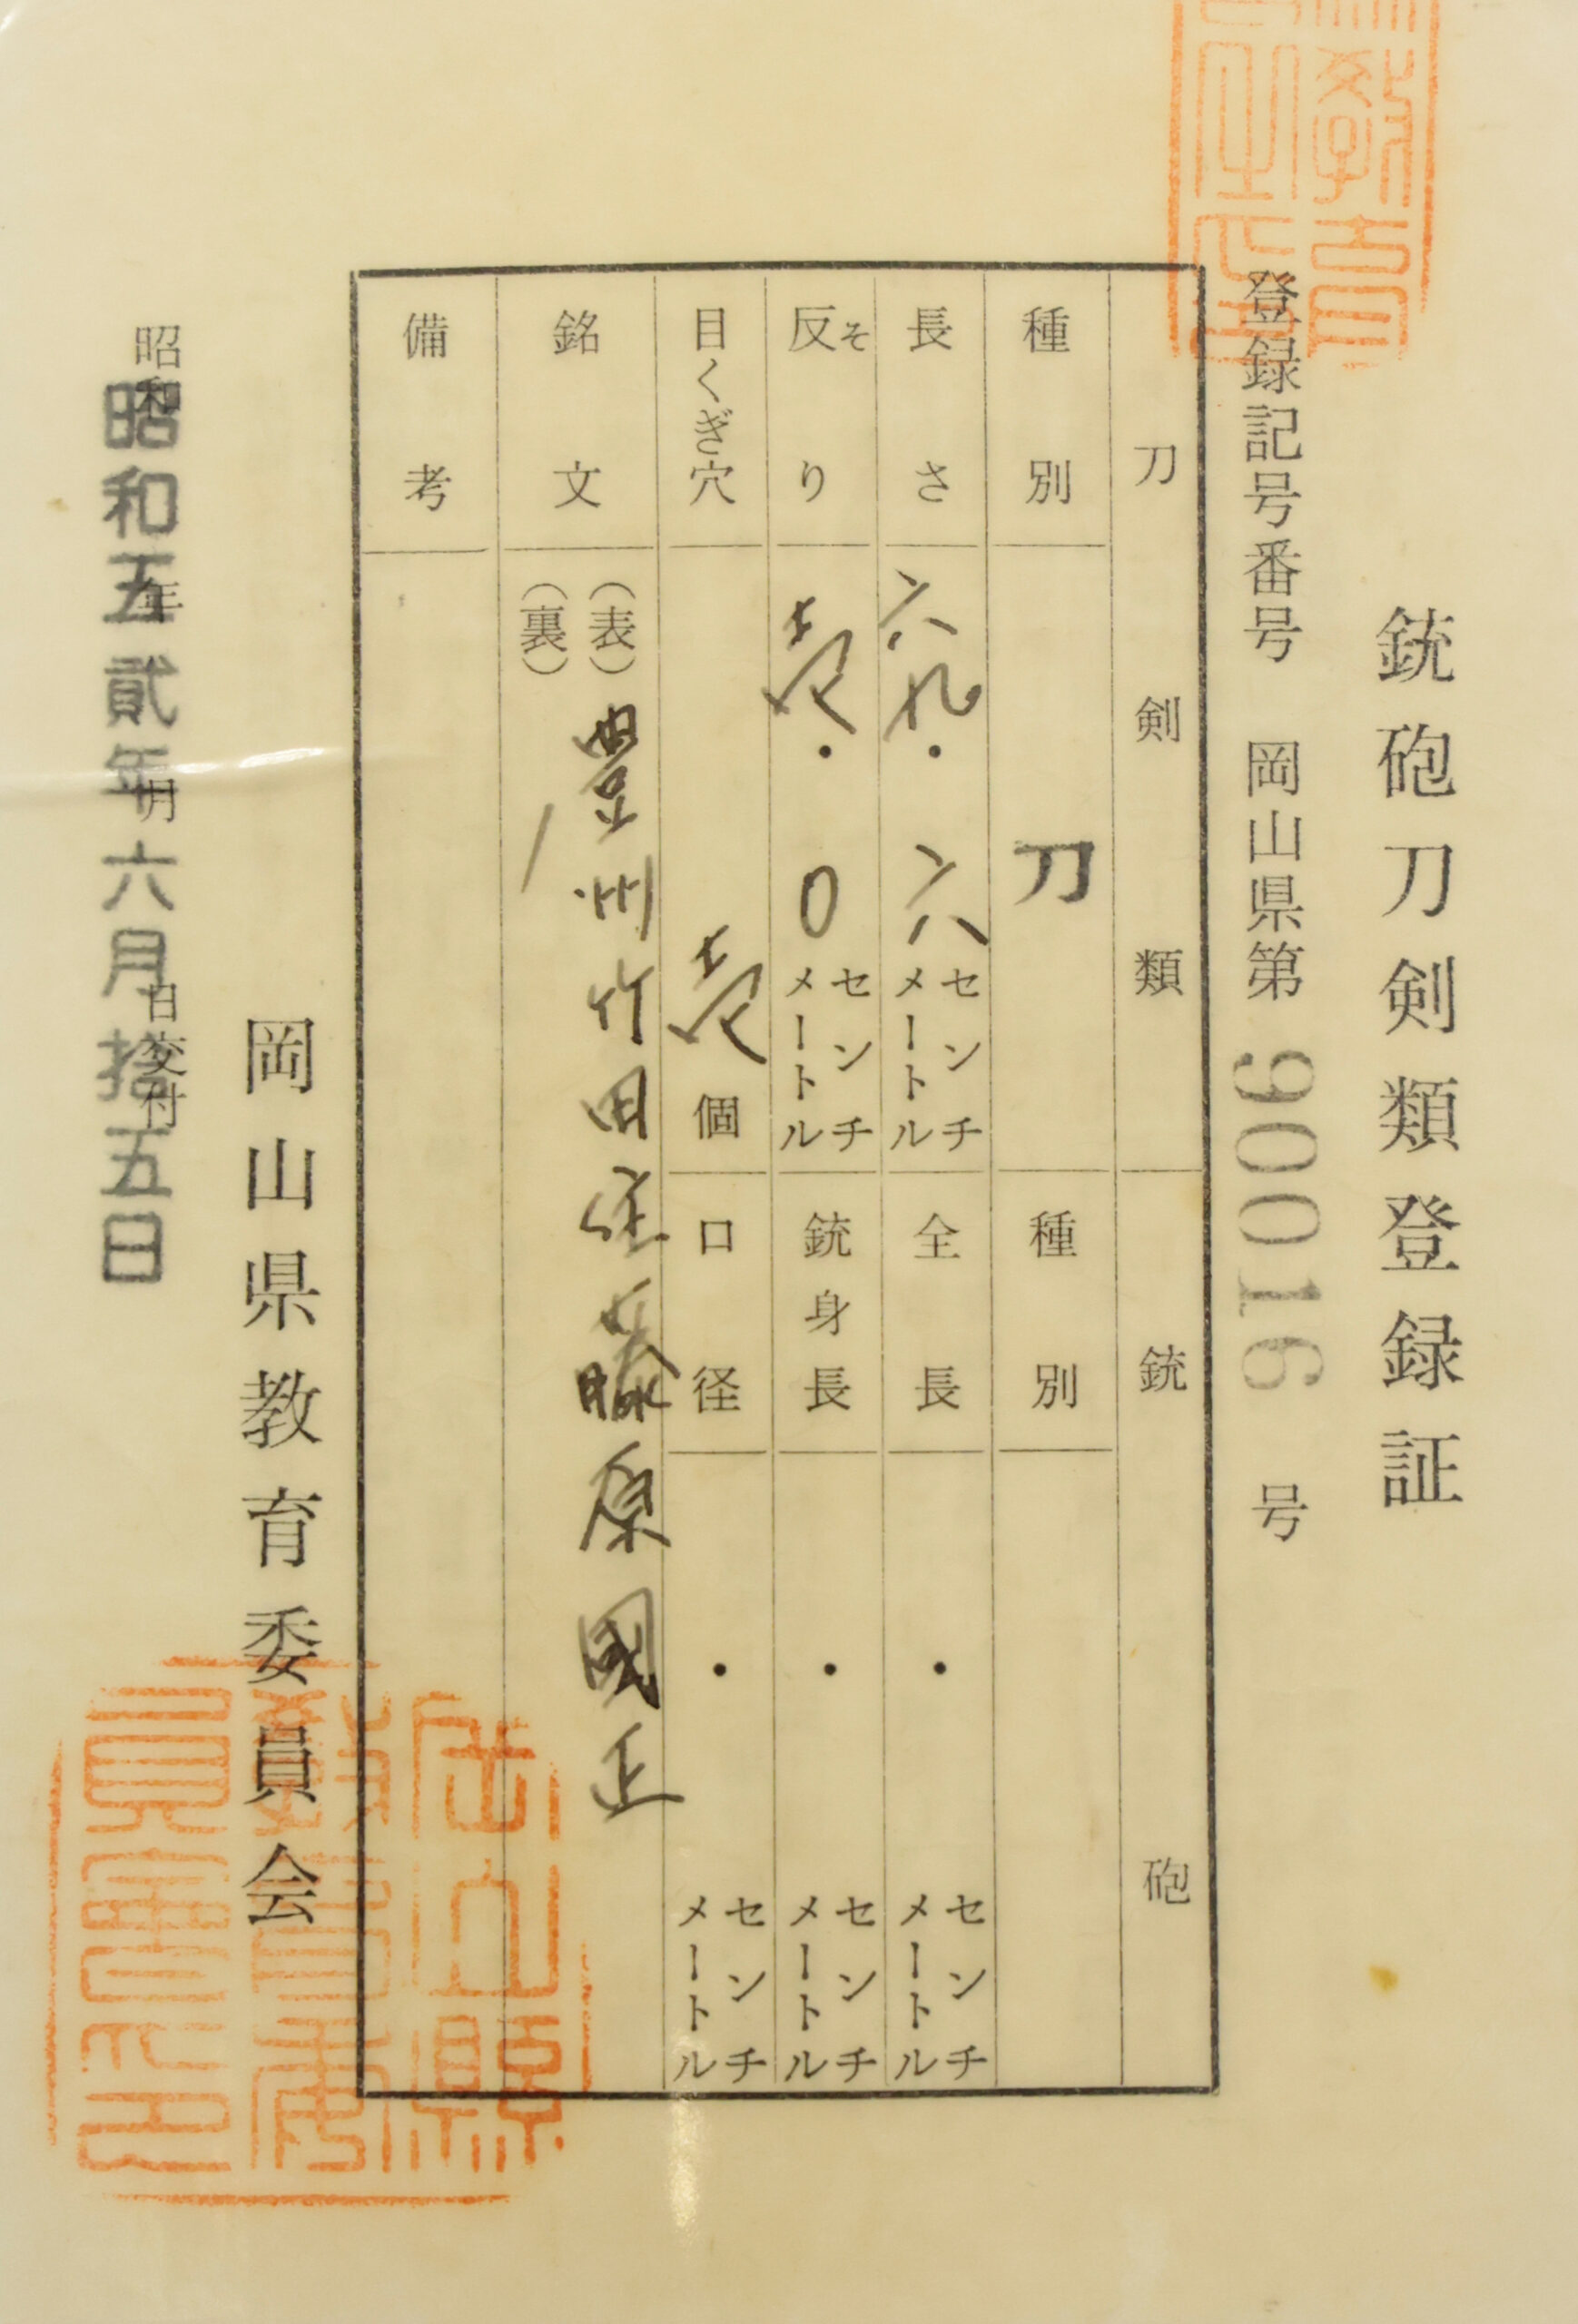 銃砲刀剣類登録証
登録記号番号 岡山県第 90016 号
刀剣類 銃砲
種別 刀 種別
長さ 六九・六 センチメートル 全長 ・ センチメートル
反り そ 壱・0 センチメートル 銃身長 ・ センチメートル
目くぎ穴 壱 個 口径 ・ センチメートル
銘文 (表) 豊州竹田住藤原國正
(裏)
備考
岡山県教育委員会
昭和 年 月 日交付
昭和五貳年六月拾五日
岡山縣
教育委
員會之印